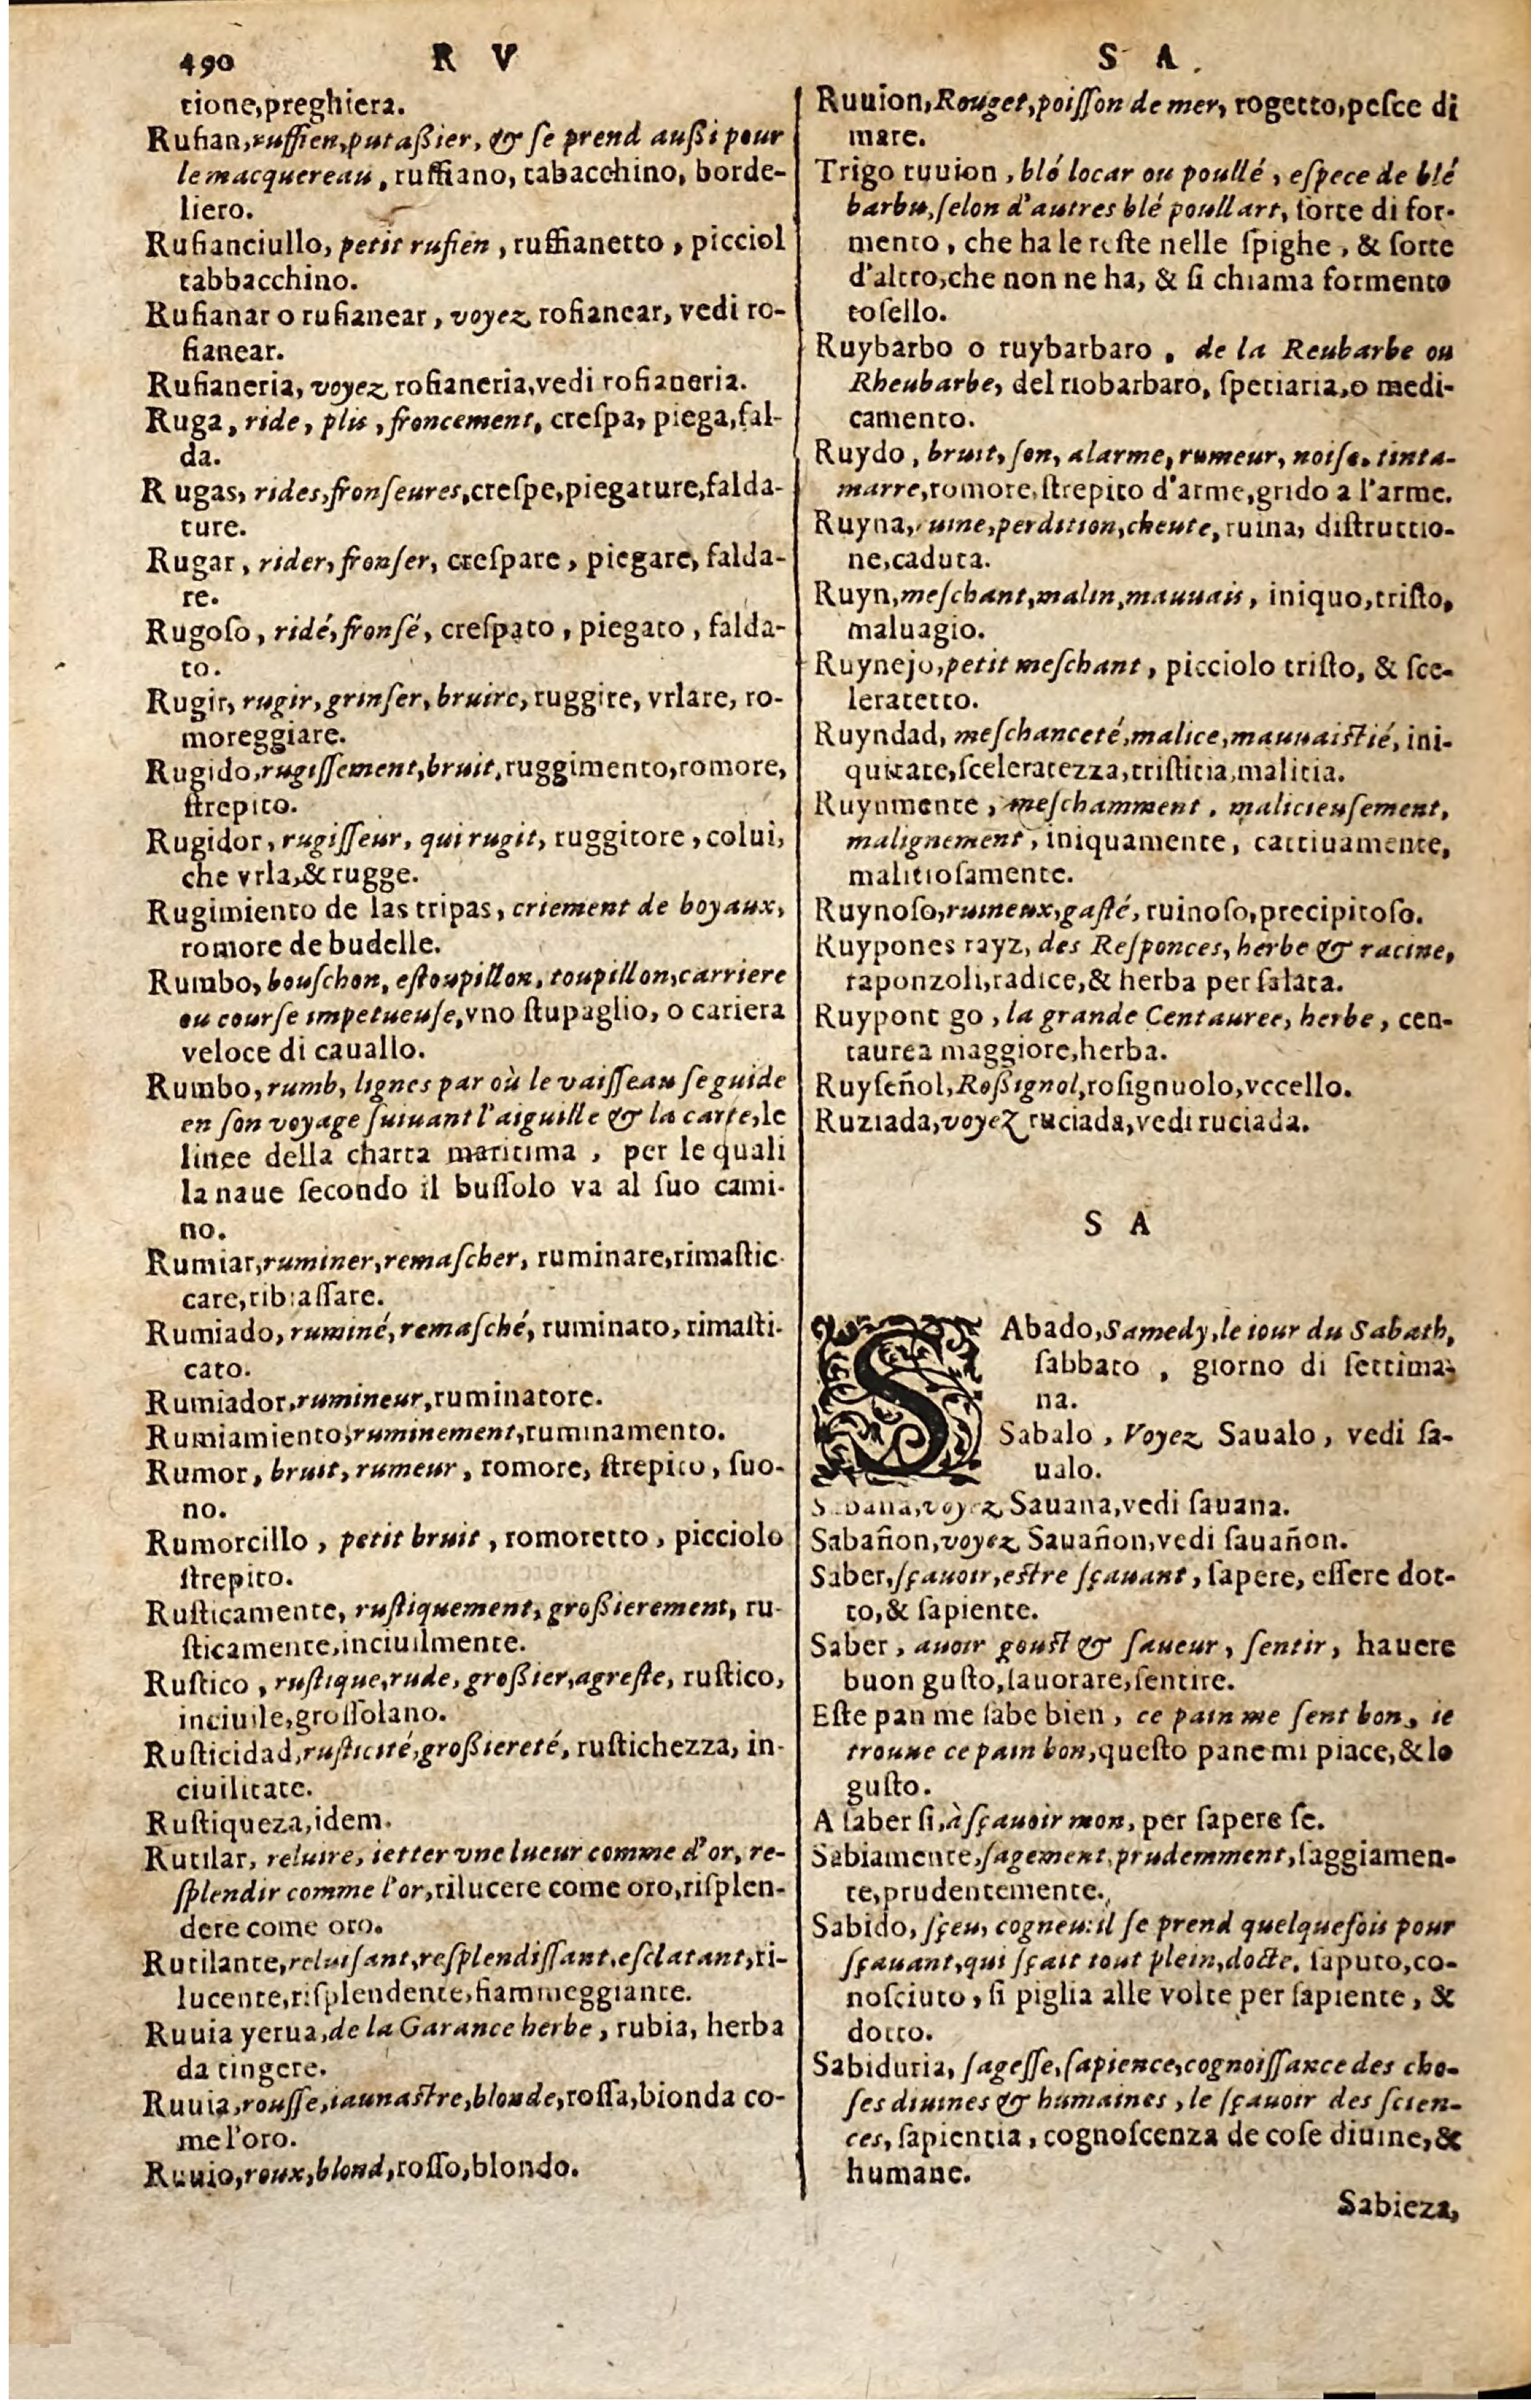 490 R V
tione,preghiera.
Rufian,ruffien,putaßier, & se prend außi pour
le macquereau, ruffiano, tabacchino, borde-
liero.
Rufianciullo, petit rufien, ruffianetto, picciol
tabbacchino.
Rufianar o rufianear, voyez rofianear, vedi ro-
fianear.
Rufianeria, voyez rofianeria,vedi rofianeria.
Ruga, ride, plis, froncement, crespa, piega,fal-
da.
Rugas, rides,fronseures,crespe,piegature,falda-
ture.
Rugar, rider,fronser, crespare, piegare, falda-
re.
Rugoso, ridé,fronsé, crespato, piegato, falda-
to.
Rugir, rugir,grinser,bruire,ruggire, vrlare, ro-
moreggiare.
Rugido,rugissement,bruit,ruggimento,romore,
strepito.
Rugidor, rugisseur, qui rugit, ruggitore, colui,
che vrla,& rugge.
Rugimiento de las tripas, criement de boyaux,
romore de budelle.
Rumbo, bouschon, estoupillon, toupillon,carriere
ou course impetueuse,vno stupaglio, o cariera
veloce di cauallo.
Rumbo, rumb, lignes par où le vaisseau se guide
en son voyage suiuant l'aiguille & la carte,le
linee della charta maritima, per le quali
la naue secondo il bussolo va al suo cami-
no.
Rumiar,ruminer,remascher, ruminare,rimastic-
care,ribiassare.
Rumiado, ruminé,remasché, ruminato, rimasti-
cato.
Rumiador,rumineur,ruminatore.
Rumiamiento,ruminement,ruminamento.
Rumor, bruit, rumeur, romore, strepito, suo-
no.
Rumorcillo, petit bruit, romoretto, picciolo
strepito.
Rusticamente, rustiquement, großierement, ru-
sticamente,inciuilmente.
Rustico, rustique,rude, großier,agreste, rustico,
inciuile,grossolano.
Rusticidad,rusticité,großiereté, rustichezza, in-
ciuilitate.
Rustiqueza,idem.
Rutilar, reluire, ietter vne lueur comme d'or, re-
splendir comme l'or,rilucere come oro,risplen-
dere come oro.
Rutilante,reluisant,resplendissant,esclatant,ri-
lucente,risplendente,fiammeggiante.
Ruuia yerua,de la Garance herbe, rubia, herba
da tingere.
Ruuia,rousse,iaunastre,blonde,rossa,bionda co-
me l'oro.
Ruuio,roux,blond,rosso,blondo.
S A.
Ruuion,Rouget,poisson de mer, rogetto,pesce di
mare.
Trigo ruuion, blé locar ou poullé, espece de blé
barbu,selon d'autres blé poullart, sorte di for-
mento, che ha le reste nelle spighe, & sorte
d'altro,che non ne ha, & si chiama formento
tosello.
Ruybarbo o ruybarbaro, de la Reubarbe ou
Rheubarbe, del riobarbaro, speciaria,o medi-
camento.
Ruydo, bruit,son, alarme,rumeur, noise, tinta-
marre,romore,strepito d'arme,grido a l'arme.
Ruyna, uine,perdition,cheute, ruina, distruttio-
ne,caduta.
Ruyn,meschant,malin,mauuais, iniquo,tristo,
maluagio.
Ruynejo,petit meschant, picciolo tristo, & sce-
leratetto.
Ruyndad, meschanceté,malice,mauuaistié, ini-
quitate,sceleratezza,tristitia,malitia.
Ruynmente, meschamment, malicieusement,
malignement, iniquamente, cattiuamente,
malitiosamente.
Ruynoso,ruineux,gasté, ruinoso,precipitoso.
Ruypones rayz, des Responces, herbe & racine,
raponzoli,radice,& herba per salata.
Ruypont go, la grande Centauree, herbe, cen-
taurea maggiore,herba.
Ruyseñol,Roßignol,rosignuolo,vccello.
Ruziada,voyez ruciada,vedi ruciada.
S A
SAbado,Samedy,le iour du Sabath,
sabbato, giorno di settima-
na.
Sabalo, Voyez Saualo, vedi sa-
ualo.
Sabana,voyez Sauana,vedi sauana.
Sabañon,voyez Sauañon,vedi sauañon.
Saber,sçauoir,estre sçauant, sapere, essere dot-
to,& sapiente.
Saber, auoir goust & saueur, sentir, hauere
buon gusto,sauorare,sentire.
Este pan me sabe bien, ce pain me sent bon, ie
trouue ce pain bon,questo pane mi piace,& lo
gusto.
A saber si,à sçauoir mon, per sapere se.
Sabiamente,sagement,prudemment,saggiamen-
te,prudentemente.
Sabido, sçeu, cogneu:il se prend quelquefois pour
sçauant,qui sçait tout plein,docte, saputo,co-
nosciuto, si piglia alle volte per sapiente, &
dotto.
Sabiduria, sagesse,sapience,cognoissance des cho-
ses diuines & humaines, le sçauoir des scien-
ces, sapientia, cognoscenza de cose diuine,&
humane.
Sabieza,